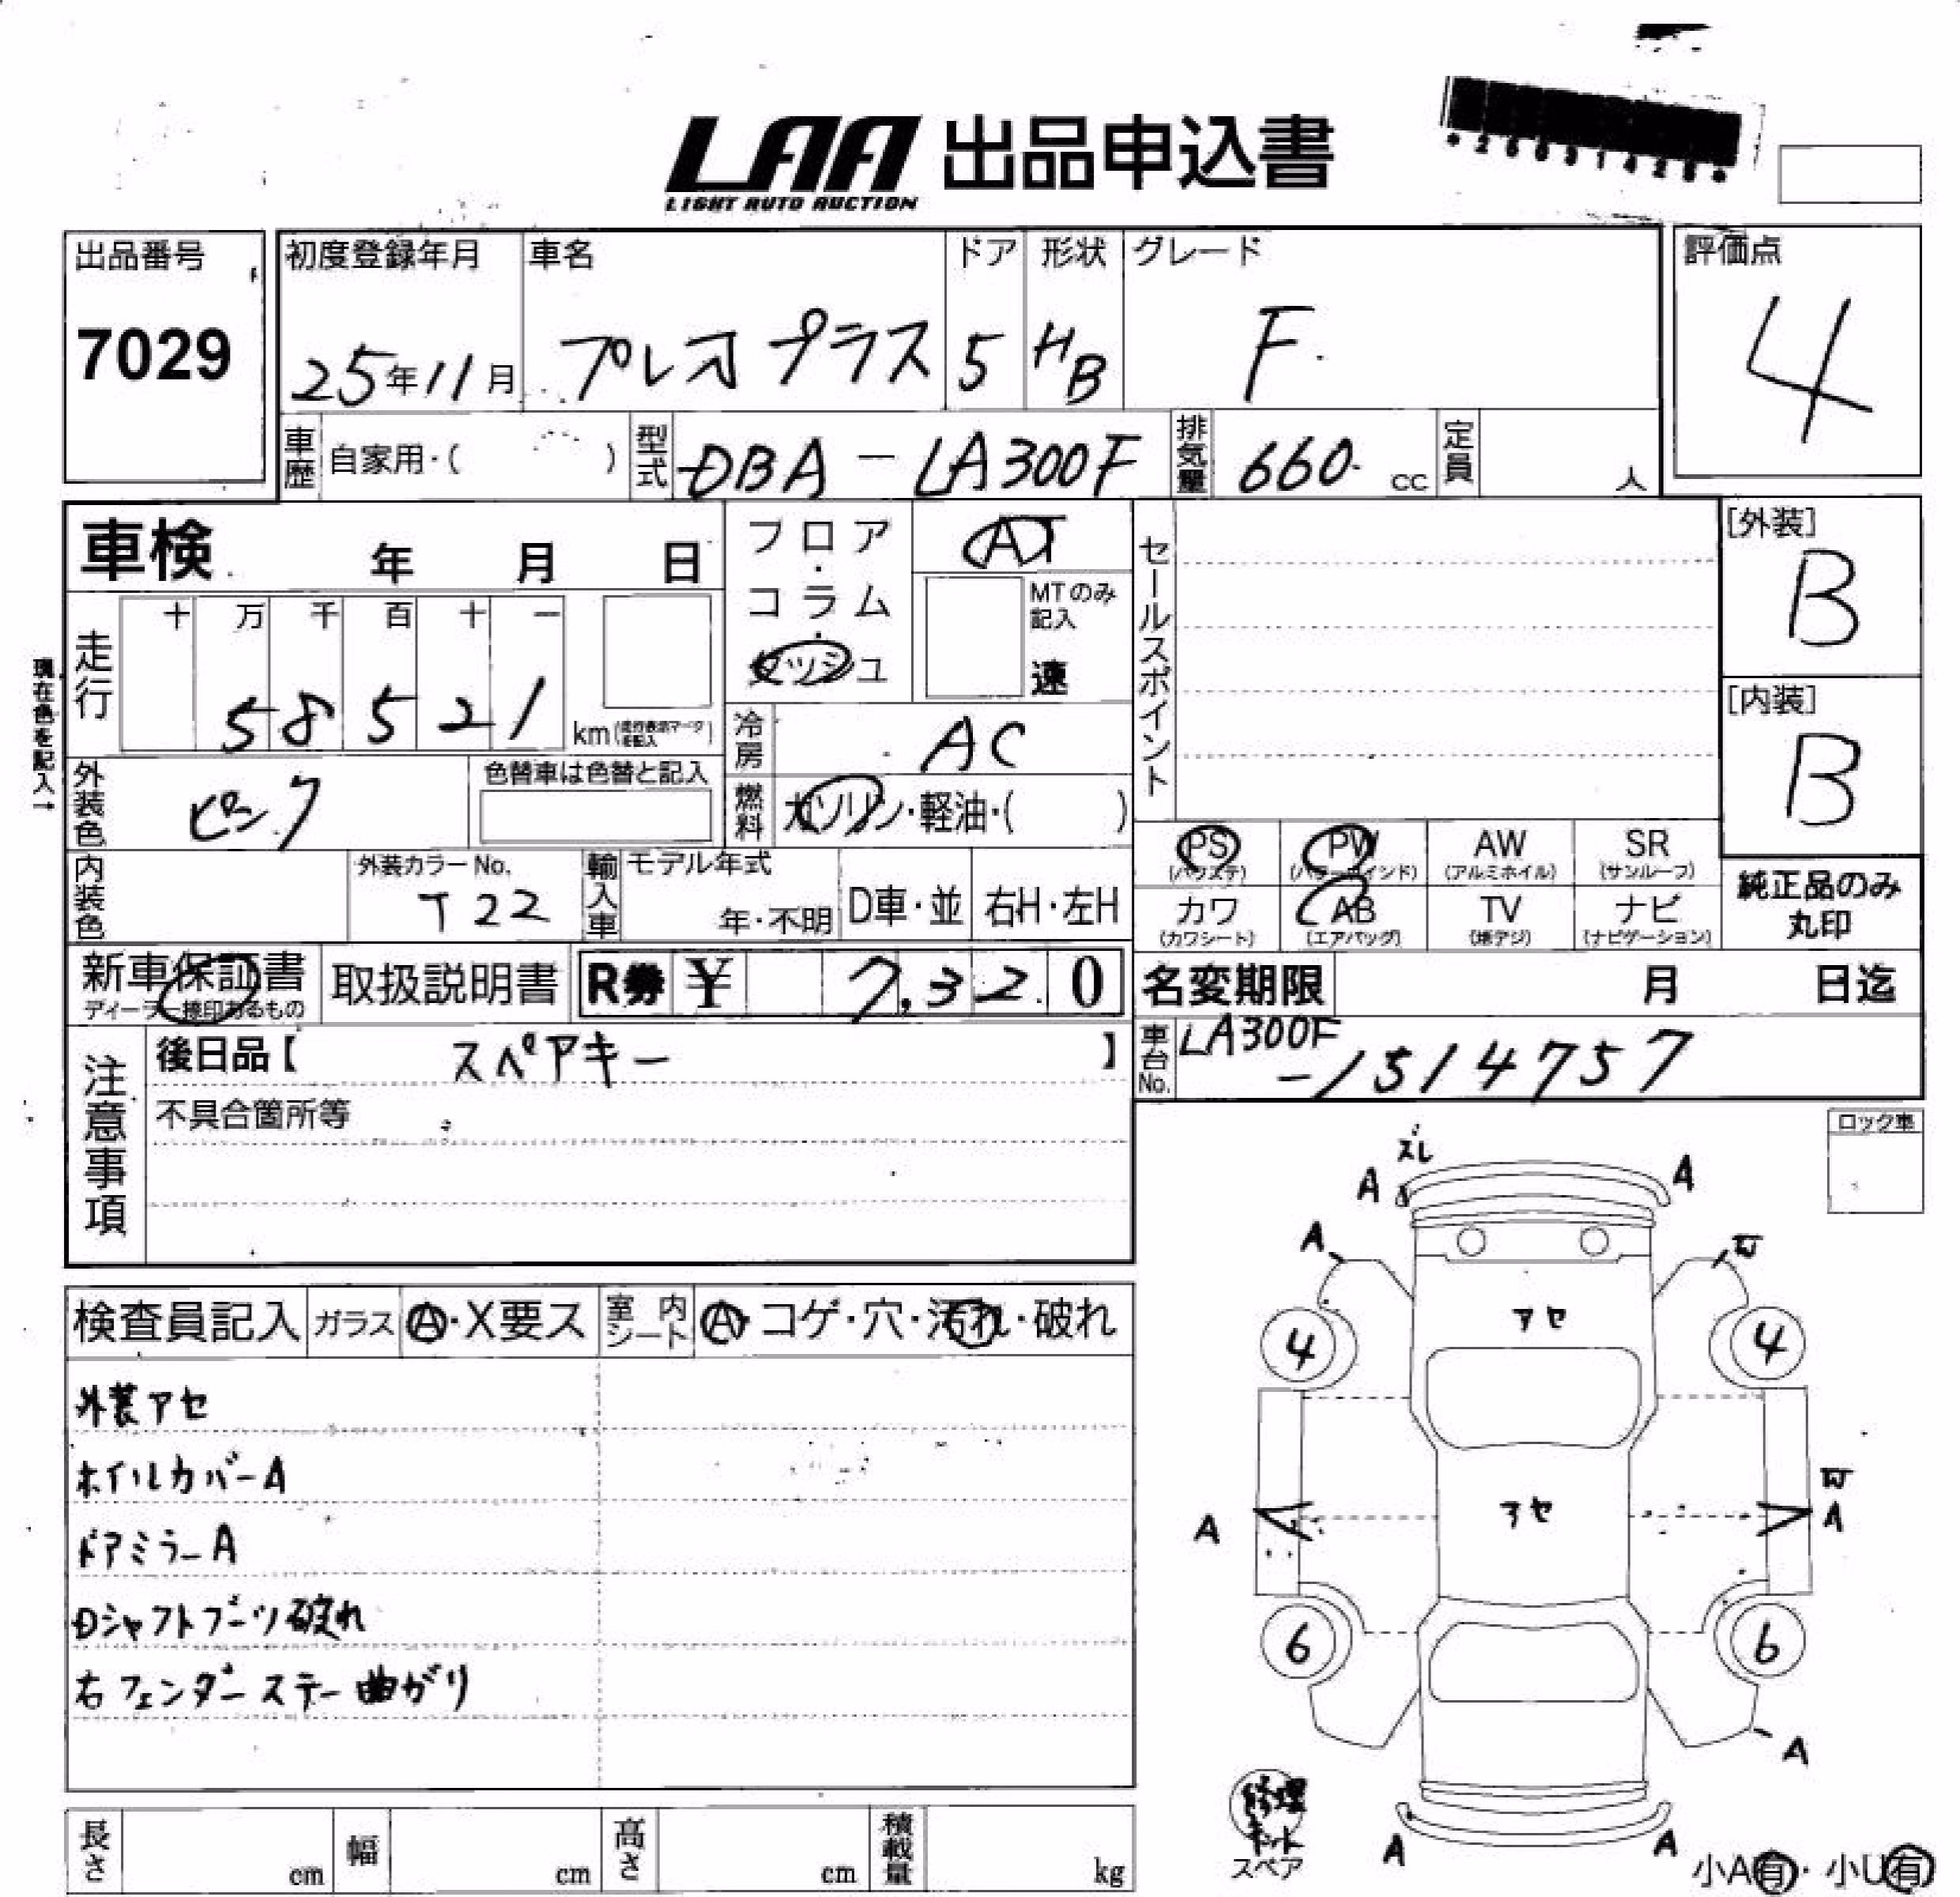 LAA 出品申込書
LIGHT AUTO AUCTION
*26031428*
出品番号
7029
初度登録年月
25年11月
車名
プレオプラス
ドア
5
形状
HB
グレード
F.
評価点
4
車歴
自家用・( )
型式
DBA-LA300F
排気量
660 cc
定員
人
車検 年 月 日
フロア・コラム・ダッシュ
AT
MTのみ記入
速
セールスポイント
[外装]
B
[内装]
B
現在色を記入→
走行
十 万 千 百 十 一
5 8 5 2 1
km(走行表示マークを記入)
冷房
AC
外装色
ピンク
色替車は色替と記入
燃料
ガソリン・軽油・( )
PS
(パワステ)
PW
(パワーウインド)
AW
(アルミホイル)
SR
(サンルーフ)
カワ
(カワシート)
AB
(エアバッグ)
TV
(地デジ)
ナビ
(ナビゲーション)
純正品のみ
丸印
内装色
外装カラーNo.
T22
輸入車
モデル年式
年・不明
D車・並
右H・左H
新車保証書
ディーラー捺印あるもの
取扱説明書
R券 ¥ 7,320
名変期限 月 日迄
車台No.
LA300F
-1514757
注意事項
後日品【 スペアキー 】
不具合箇所等
ロック車
検査員記入
ガラス
A・X要ス
室内シート
A・コゲ・穴・汚れ・破れ
外装アセ
ホイルカバーA
ドアミラーA
Dシャフトブーツ破れ
右フェンダーステー曲がり
ズレ
A A
A W
アセ
4 4
W
アセ
A A
6 6
A
修理
キット
スペア
A A
小A有・小U有
長さ cm
幅 cm
高さ cm
積載量 kg